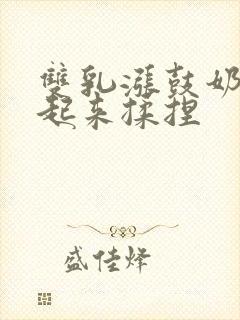 雙乳漲鼓奶
起来揉捏
盛佳烽